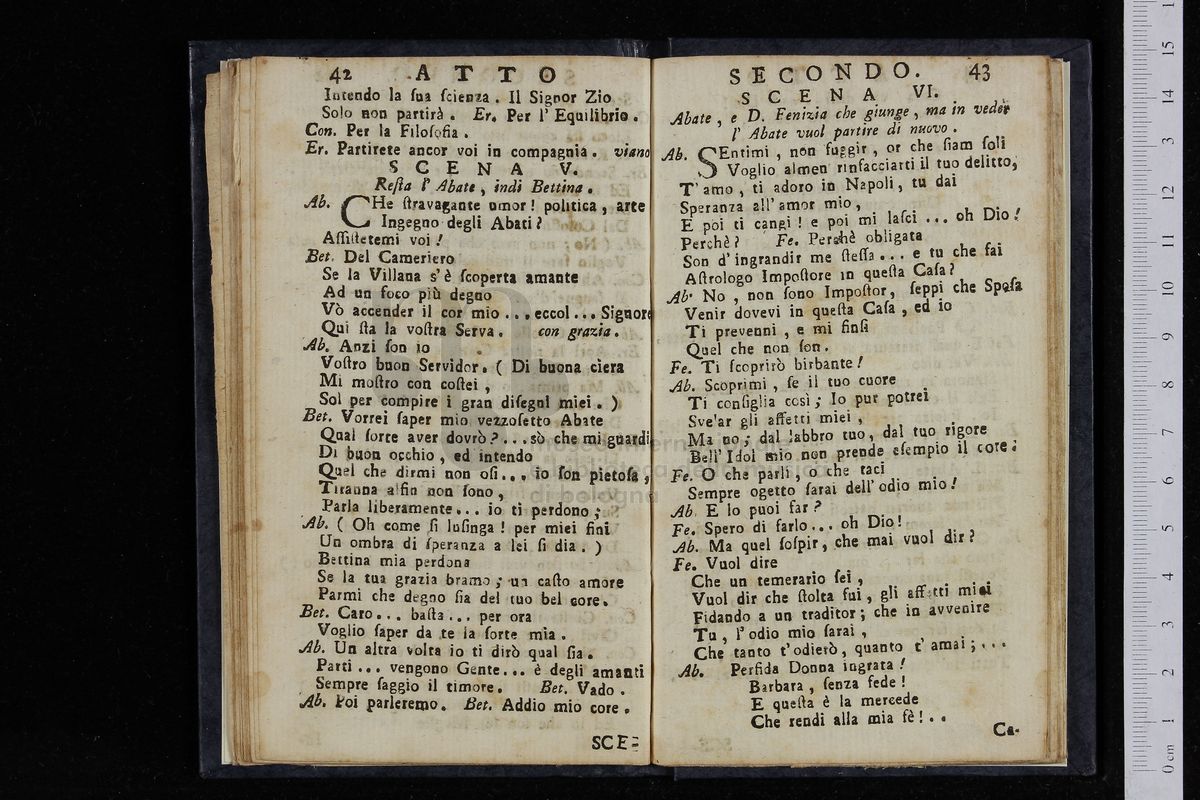 42 . A T T O
Intendo la ſua ſcienza . Il Signor Zio
Solo non partirà . Er. Per l' Equilibrio .
Con. Per la Filoſofia .
Er. Partirete ancor voi in compagnia . viano
S C E N A V.
Reſta l' Abate , indi Bettina .
Ab. CHe ſtravagante umor ! politica , arte
Ingegno degli Abati ?
Aſſiſtetemi voi !
Bet. Del Cameriero
Se la Villana s' è ſcoperta amante
Ad un foco più degno
Vò accender il cor mio . . . eccol . . . Signore
Qui ſta la voſtra Serva . con grazia .
Ab. Anzi ſon io
Voſtro buon Servidor . ( Di buona ciera
Mi moſtro con coſtei ,
Sol per compire i gran diſegni miei . )
Bet. Vorrei ſaper mio vezzoſetto Abate
Qual ſorte aver dovrò ? . . . sò che mi guardi
Di buon occhio , ed intendo
Quel che dirmi non oſi . . . io ſon pietoſa ,
Tiranna alfin non ſono ,
Parla liberamente . . . io ti perdono ;
Ab. ( Oh come ſi luſinga ! per miei fini
Un ombra di ſperanza a lei ſi dia . )
Bettina mia perdona
Se la tua grazia bramo ; un caſto amore
Parmi che degno ſia del tuo bel core .
Bet. Caro . . . baſta . . . per ora
Voglio ſaper da te la ſorte mia .
Ab. Un altra volta io ti dirò qual ſia .
Parti . . . vengono Gente . . . è degli amanti
Sempre ſaggio il timore . Bet. Vado .
Ab. Poi parleremo . Bet. Addio mio core .
SCE-
SECONDO. 43
S C E N A VI.
Abate , e D. Fenizia che giunge , ma in veder
l' Abate vuol partire di nuovo .
Ab. SEntimi , non fuggir , or che ſiam ſoli
Voglio almen rinfacciarti il tuo delitto,
T' amo , ti adoro in Napoli , tu dai
Speranza all' amor mio ,
E poi ti cangi ! e poi mi laſci . . . oh Dio !
Perchè ? Fe. Perchè obligata
Son d' ingrandir me ſteſſa . . . e tu che fai
Aſtrologo Impoſtore in queſta Caſa ?
Ab. No , non ſono Impoſtor , ſeppi che Spoſa
Venir dovevi in queſta Caſa , ed io
Ti prevenni , e mi finſi
Quel che non ſon .
Fe. Ti ſcoprirò birbante !
Ab. Scoprimi , ſe il tuo cuore
Ti conſiglia così ; Io pur potrei
Sve'ar gli affetti miei ,
Ma no ; dal labbro tuo , dal tuo rigore
Bell' Idol mio non prende eſempio il core .
Fe. O che parli , o che taci
Sempre ogetto ſarai dell' odio mio !
Ab. E lo puoi far ?
Fe. Spero di farlo . . . oh Dio !
Ab. Ma quel ſoſpir , che mai vuol dir ?
Fe. Vuol dire
Che un temerario ſei ,
Vuol dir che ſtolta fui , gli affetti miei
Fidando a un traditor ; che in avvenire
Tu , l' odio mio ſarai ,
Che tanto t' odierò , quanto t' amai ; . . .
Ab. Perfida Donna ingrata !
Barbara , ſenza fede !
E queſta è la mercede
Che rendi alla mia fè ! . .
Ca-
museo internazionale
e biblioteca della musica
di bologna
0 cm 1 2 3 4 5 6 7 8 9 10 11 12 13 14 15